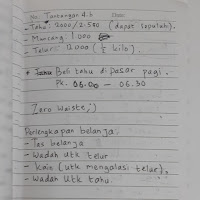 No: Tantangan 4.b Date:
- Tahu: 2000/2.500 (dapat sepuluh).
- Muncang: 1.000
- Telur: 12000 (1/2 kilo).
+ Tahu Beli tahu di pasar pagi.
Pk. 06.00 - 06.30
Zero Waiste;)
Perlengkapan belanja,
- Tas belanja
- Wadah utk telur
- Kain (utk mengalasi telur).
- Wadah utk tahu.